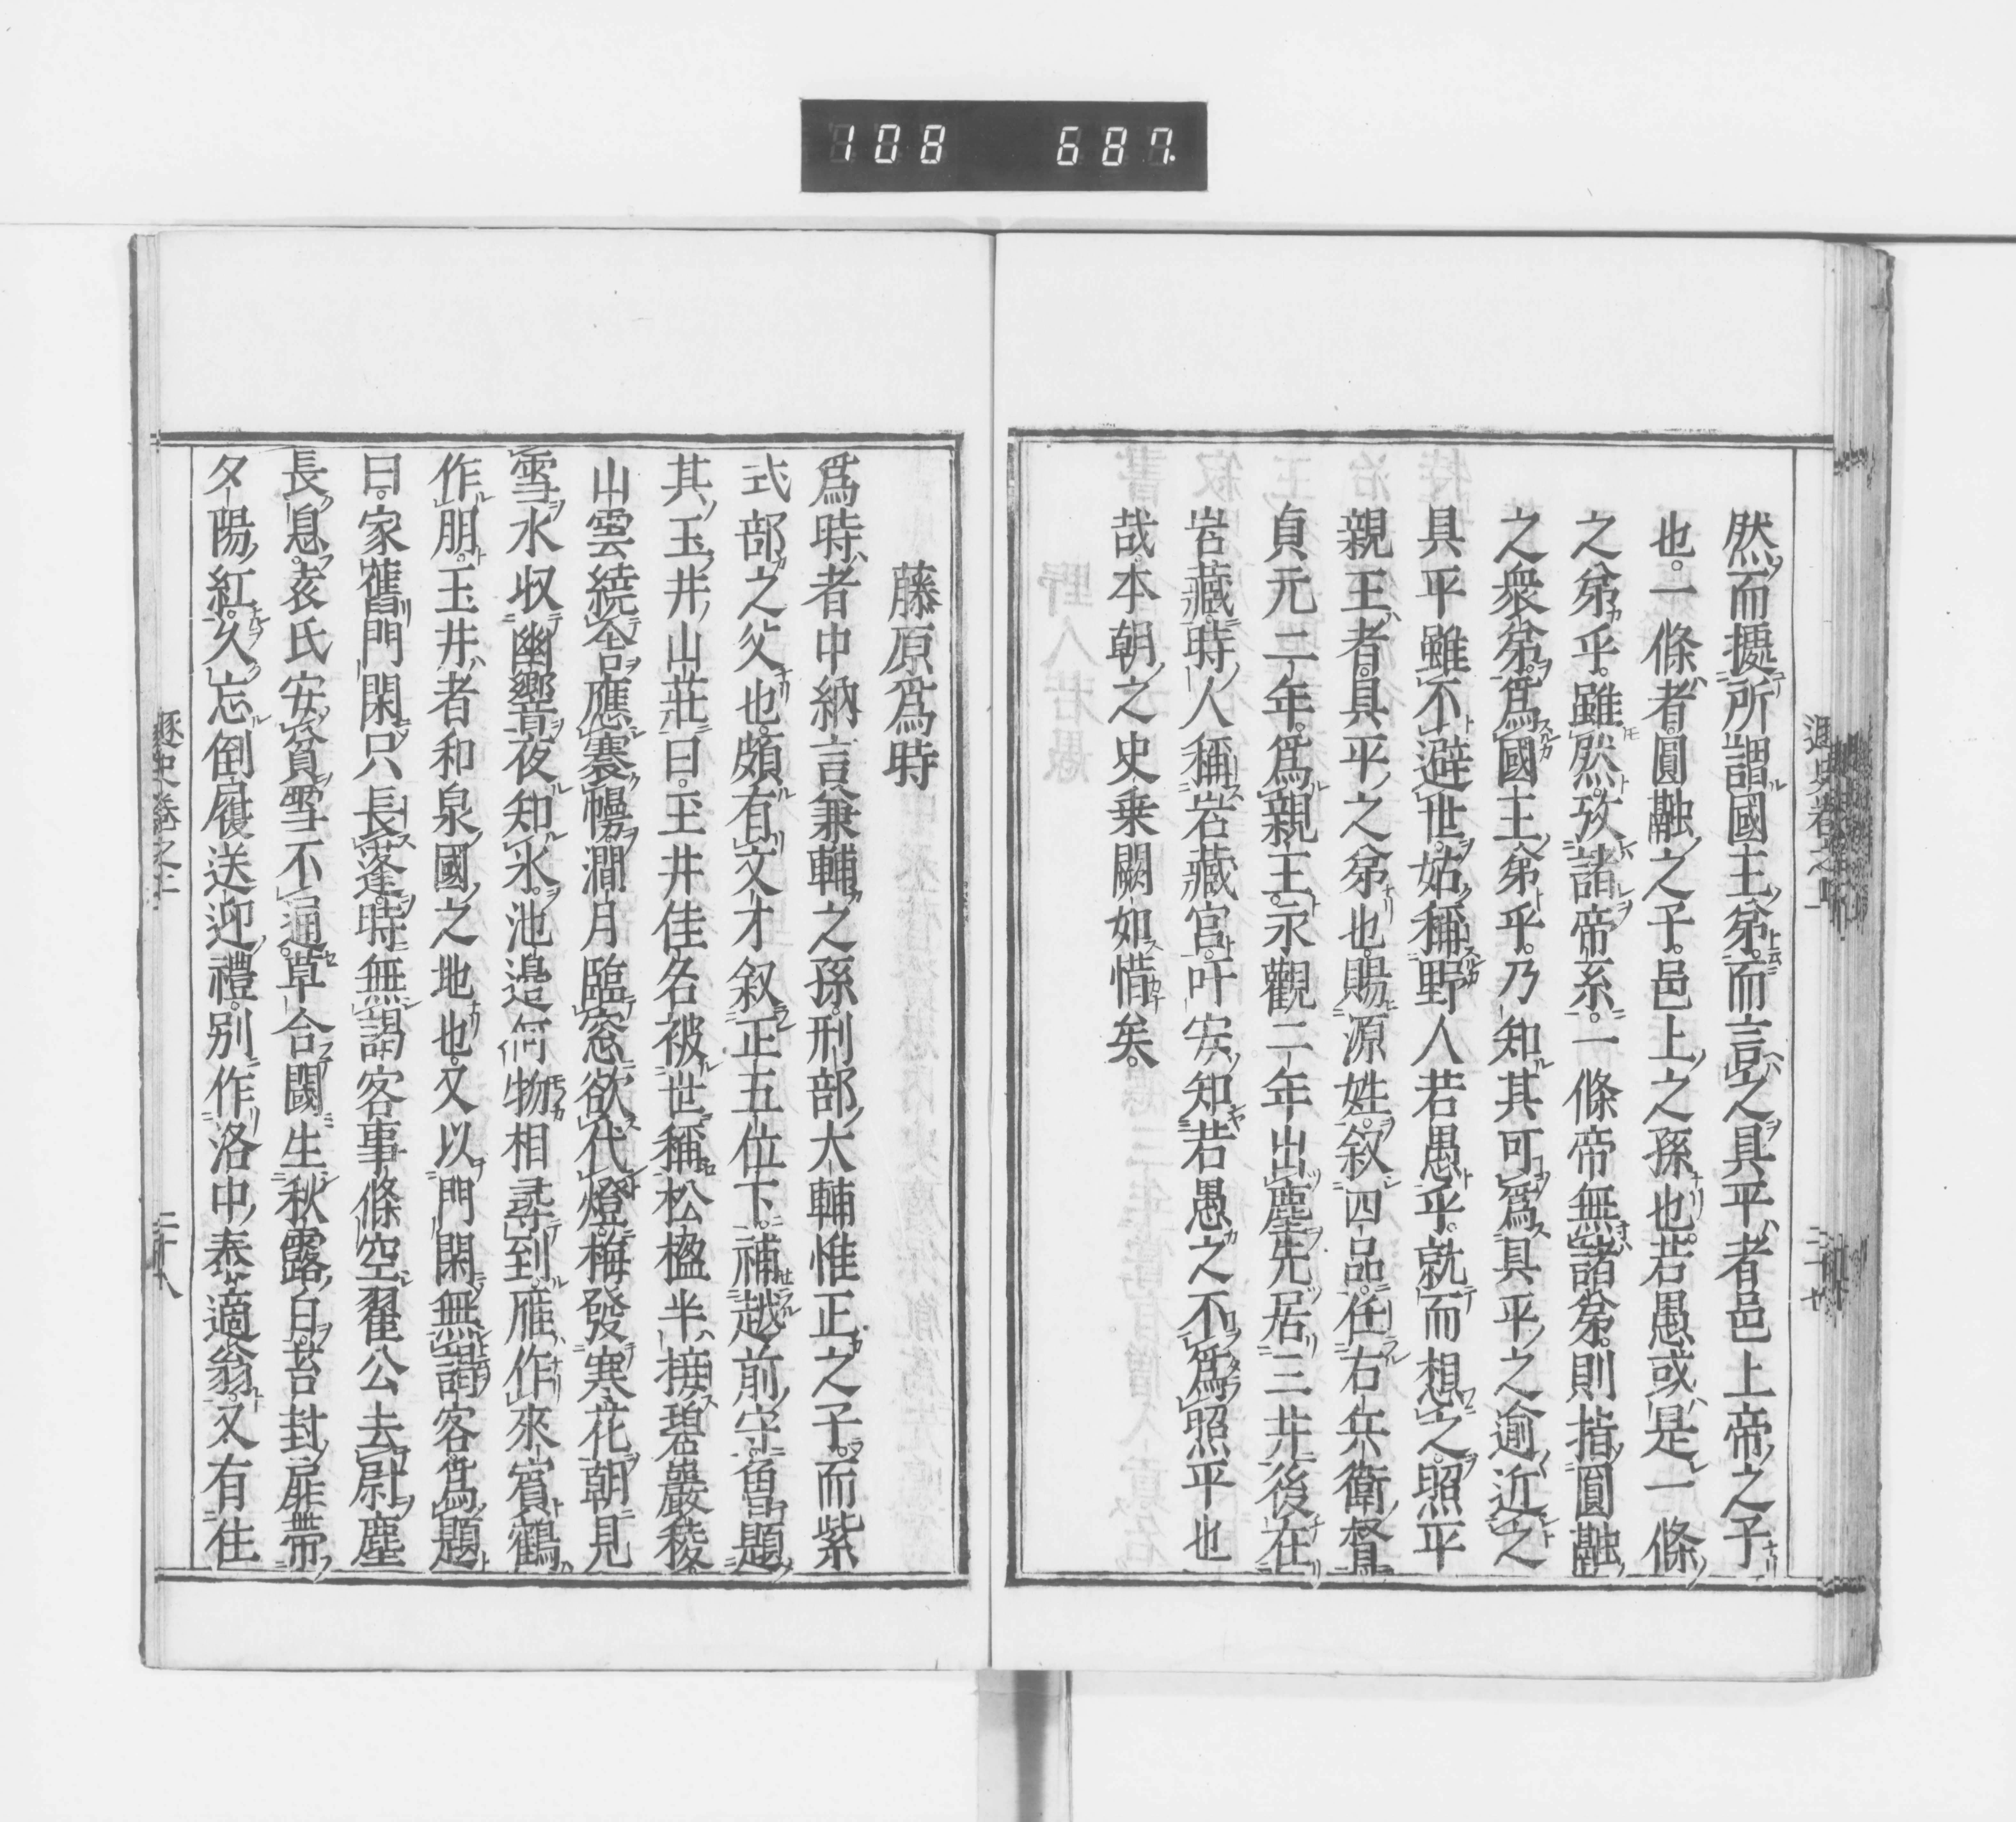 108 687
然而據所謂國主弟而言之具平者邑上帝之子
也。一條者圓融之子。邑上之孫也。若愚或是一條
之弟乎。雖然攷諸帝系。一條帝無諸弟。則指圓融
之衆弟爲國主弟乎。乃知其可爲具平之逾近之
具平雖不避世。姑稱野人若愚乎。就而想之。照平
親王者。具平之弟也。賜源姓。叙四品。任右兵衛督
貞元二年。爲親王。永觀二年出塵先居三井後在
岩藏。時人稱岩藏宮。叶安知若愚之不爲照平也
哉。本朝之史乗闕如惜矣。
藤原爲時
爲時者中納言兼輔之孫。刑部大輔惟正之子。而紫
式部之父也。頗有文才叙正五位下。補越前守。曾題
其玉井山莊曰。玉井佳名被世稱松楹半接碧巖稜
山雲繞舍應褰幌。澗月臨窓欲代燈。梅發寒花朝見
雪水収幽響夜知氷。池邉何物相尋到。雁作來賓鶴
作朋。玉井者和泉國之地也。又以門閑無謁客。爲題
曰。家舊門閑只長蓬。時無謁客事條空翟公去尉塵
長息。袁氏安貧雪不通。草合閾生秋露白。苔封扉帶
夕陽紅。久忘倒履送迎禮。別作洛中泰適翁。又有住
遯史卷之上
二十八